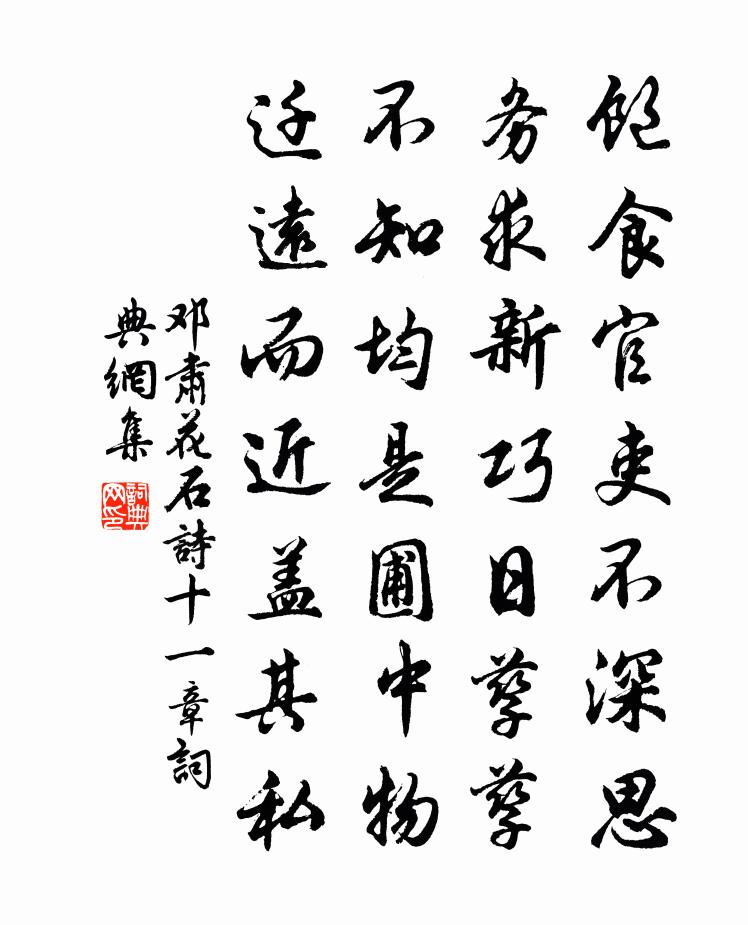 飽食官吏不深思
务求新巧日孳孳
不知均是圃中物
迁遠而近盖其私
邓肅花石詩十一章詞
典網集
詞典网印